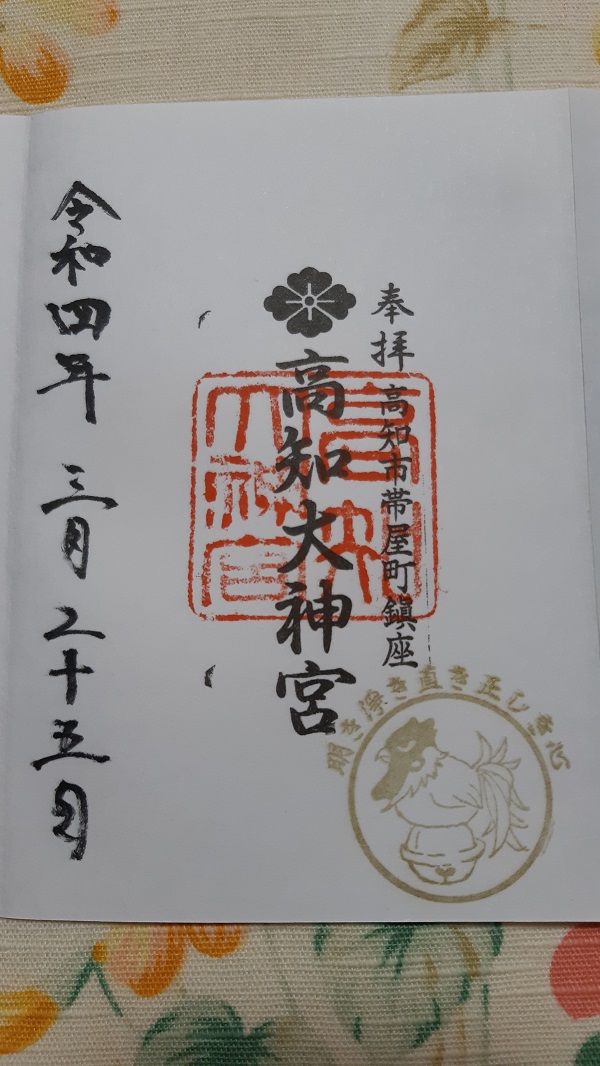 奉拝 高知市帯屋町鎮座
高知大神宮
高知大神宮
令和四年 三月 二十五日
明き浄き直き正しき心